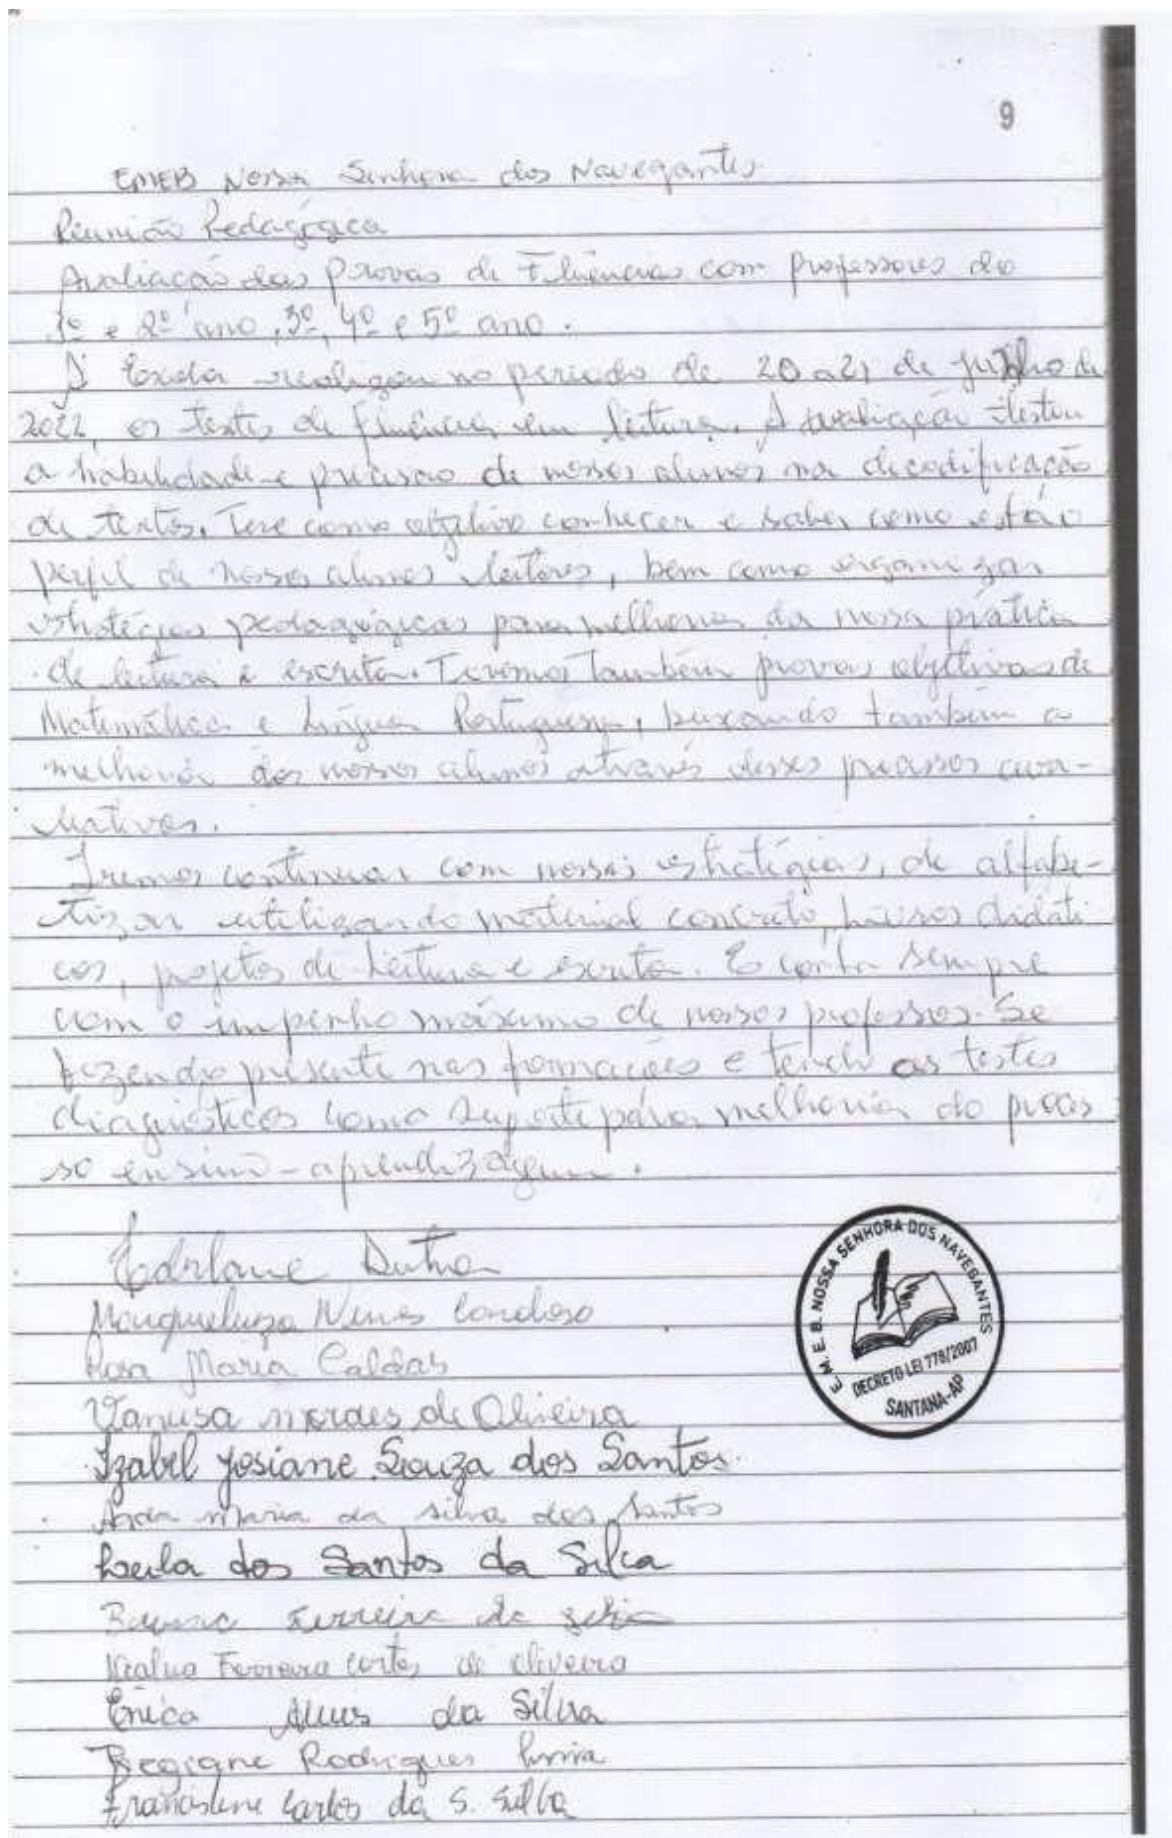 9
EMEB Nossa Senhora dos Navegantes
Reunião Pedagógica
Avaliação das Provas de Fluências com professores do
1º e 2º ano, 3º, 4º e 5º ano.
realizou no periodo de 20 a 21 de julho de
2022, os testes de fluência em leitura. A avaliação testou
a habilidade e precisão de nossos alunos na decodificação
de textos. Teve como objetivo conhecer e saber como está o
perfil de nossos alunos leitores, bem como organizar
estratégias pedagógicas para melhoria da nossa prática
de leitura e escrita. Teremos também provas objetivas de
Matemática e Língua Portuguesa, buscando também a
melhoria dos nossos alunos através desses processos
Iremos continuar com nossas estratégias, de alfabe-
tizar utilizando material concreto, livros didáti
cos, projetos de leitura e escrita. E conta sempre
com o impenho máximo de nossos professores. Se
fazendo presente nas formações e tendo os testes
diagnósticos como suporte para melhoria do proces
so ensino-aprendizagem.
Dutra
Nunes Cardoso
Rosa Maria Caldas
Vanusa moraes de Oliveira
Izabel Josiane Souza dos Santos
maria da silva dos Santos
Leila dos Santos da Silva
Ferreira da
Ferreira Cortes de oliveira
Enica Alves da Silva
Regiane Rodrigues
Carlos da S. Silva
E. M. E. B. NOSSA SENHORA DOS NAVEGANTES
DECRETO LEI 778/2007
SANTANA-AP